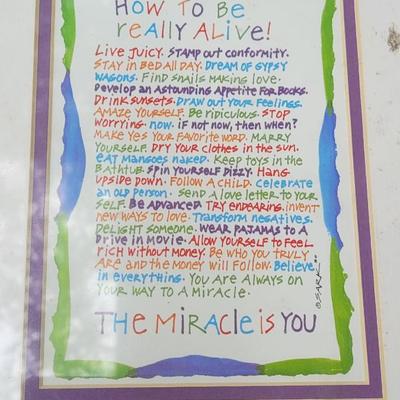 HOW TO BE
REALLY ALIVE!
LIVE JUICY. STAMP OUT CONFORMITY.
STAY IN BED ALL DAY. DREAM OF GYPSY
WAGONS. FIND SNAILS MAKING LOVE.
DEVELOP AN ASTOUNDING APPETITE FOR BOOKS.
DRINK SUNSETS. DRAW OUT YOUR FEELINGS.
AMAZE YOURSELF. BE RIDICULOUS. STOP
WORRYING. NOW. IF NOT NOW, THEN WHEN?
MAKE YES YOUR FAVORITE WORD. MARRY
YOURSELF. DRY YOUR CLOTHES IN THE SUN.
EAT MANGOES NAKED. KEEP TOYS IN THE
BATHTUB. SPIN YOURSELF DIZZY. HANG
UPSIDE DOWN. FOLLOW A CHILD. CELEBRATE
AN OLD PERSON. SEND A LOVE LETTER TO YOUR
SELF. BE ADVANCED. TRY ENDEARING. INVENT
NEW WAYS TO LOVE. TRANSFORM NEGATIVES.
DELIGHT SOMEONE. WEAR PAJAMAS TO A
DRIVE IN MOVIE. ALLOW YOURSELF TO FEEL
RICH WITHOUT MONEY. BE WHO YOU TRULY
ARE AND THE MONEY WILL FOLLOW. BELIEVE
IN EVERYTHING. YOU ARE ALWAYS ON
YOUR WAY TO A MIRACLE.
©SARK
THE MIRACLE IS YOU